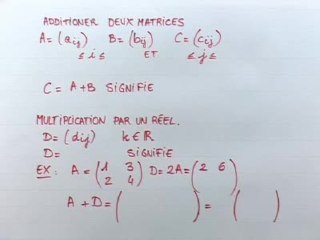 ADDITIONER DEUX MATRICES
A=(aij) B=(bij) C=(cij)
≤ i ≤ ET ≤ j ≤
C = A+B SIGNIFIE
MULTIPLICATION PAR UN RÉEL.
D=(dij) k∈ℝ
D= SIGNIFIE
EX: A = (1 3 D=2A=(2 6
2 4) )
A + D = ( ) = ( )